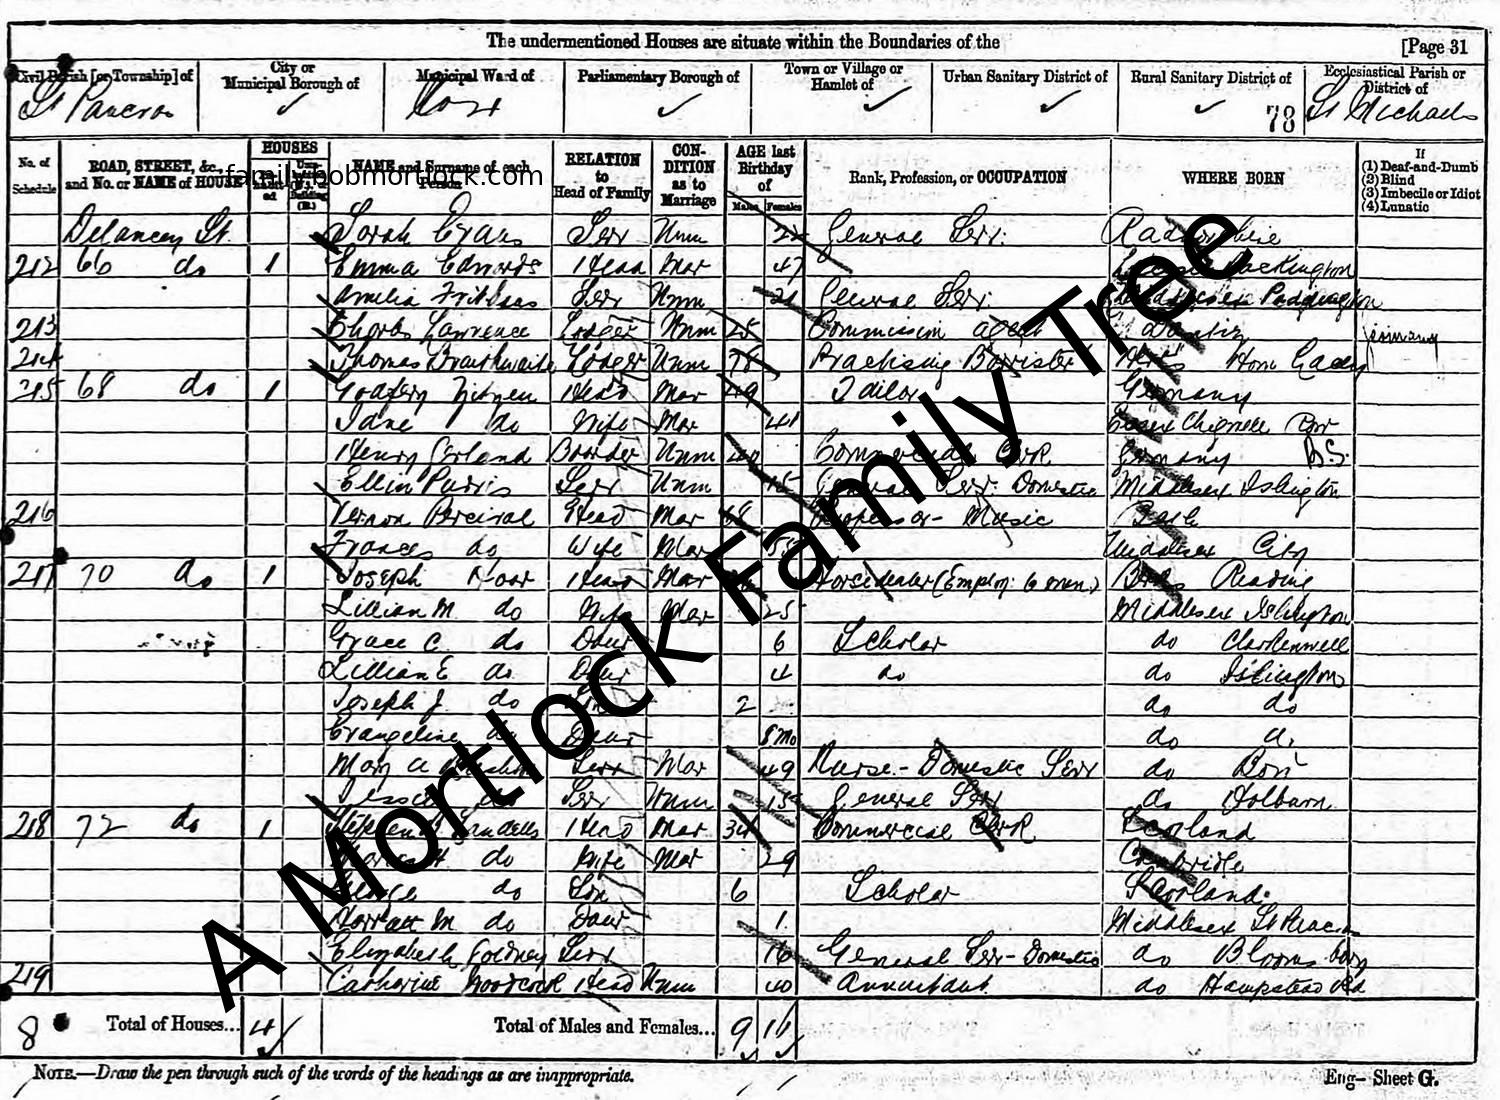 The undermentioned Houses are situate within the Boundaries of the [Page 31
Civil Parish [or Township] of City or Municipal Borough of Municipal Ward of Parliamentary Borough of Town or Village or Hamlet of Urban Sanitary District of Rural Sanitary District of Ecclesiastical Parish or District of
St Pancras 78 St Michaels
No. of Schedule ROAD, STREET, &c., and No. or NAME of HOUSE HOUSES NAME and Surname of each Person RELATION to Head of Family CONDITION as to Marriage AGE last Birthday of Males Females Rank, Profession, or OCCUPATION WHERE BORN If (1) Deaf-and-Dumb (2) Blind (3) Imbecile or Idiot (4) Lunatic
family.bobmortlock.com
Delancey St. Sarah Evans Serv Unm General Serv:
212 66 do 1 Emma Edwards Head Mar 47
Amelia Serv Unm 21 General Serv: Paddington
213 Lawrence Lodger Unm 25 Commission agent
214 Thomas Braithwaite Lodger Unm Practising Barrister
215 68 do 1 Godfery Head Mar 49 Tailor Germany
Jane do Wife Mar 41 Essex Chigwell Row
Henry Boarder Unm Commercial Clerk Germany B.S.
Ellen Purvis Serv Unm 15 General Serv. Domestic Middlesex Islington
216 Vernon Percival Head Mar Professor - Music Bath
Frances do Wife Mar Middlesex City
217 70 do 1 Joseph Head Mar Horsedealer (Employ: 6 men) Berks Reading
Lillian M. do Wife Mar 25 Middlesex Islington
Grace C. do Daur 6 Scholar do Clerkenwell
Lillian E do Daur 4 do do Islington
Joseph J. do Son 2 do do
Evangeline do Daur 8 Mo do do
Mary A Serv Mar 49 Nurse - Domestic Serv do
Jessie do Serv Unm 15 General Serv do Holborn
218 72 do 1 Stephen Sandells Head Mar 34 Commercial Clerk Scotland
do Wife Mar 29
George do Son 6 Scholar Scotland
M do Daur 1 Middlesex St Pancras
Elizabeth Serv 16 General Serv - Domestic do Bloomsbury
219 Catherine Woodcock Head Unm 40 Annuitant do Hampstead Rd
8 Total of Houses... 4 Total of Males and Females... 9 16
NOTE.—Draw the pen through such of the words of the headings as are inappropriate. Eng- Sheet G.
A Mortlock Family Tree